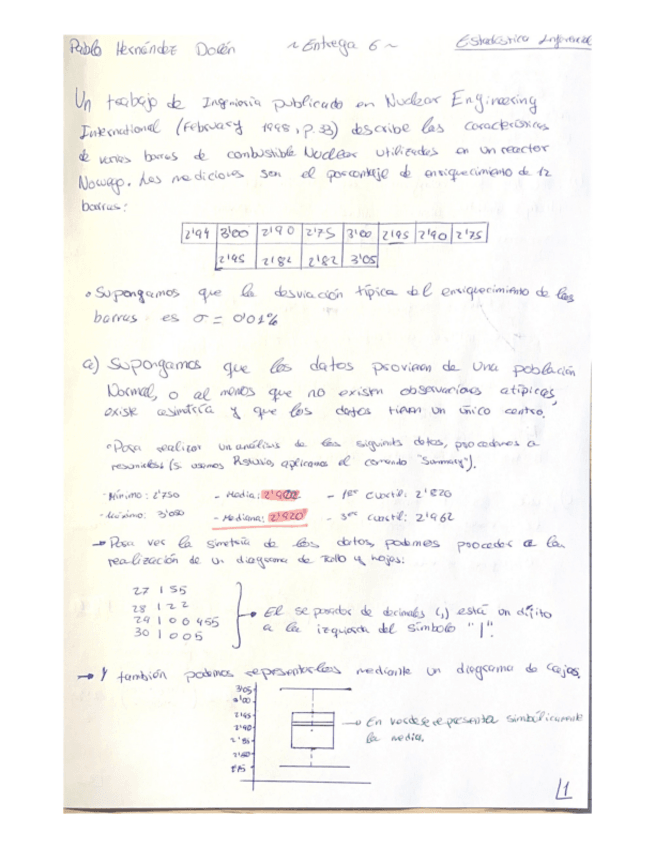 Pablo Hernández Dolón ~ Entrega 6 ~ Estadística Inferencial
Un trabajo de Ingeniería publicado en Nuclear Engineering
International (February 1998, p.33) describe las características
de varias barras de combustible Nuclear utilizadas en un reactor
Noruego. Las mediciones son el porcentaje de enriquecimiento de 12
barras:
2'94 3'00 2'90 2'75 3'00 2'95 2'90 2'75
2'95 2'82 2'82 3'05
• Supongamos que la desviación típica del enriquecimiento de las
barras es σ = 0'01%
a) Supongamos que los datos provienen de una población
Normal, o al menos que no existen observaciones atípicas,
existe asimetría y que los datos tienen un único centro.
• Para realizar un análisis de los siguientes datos, procedemos a
resumirlos (si usamos Rstudio, aplicamos el comando "Summary").
- Mínimo: 2'750 - Media: 2'902 - 1er cuartil: 2'820
- Máximo: 3'050 - Mediana: 2'920 - 3er cuartil: 2'962
→ Para ver la simetría de los datos, podemos proceder a la
realización de un diagrama de Tallo y hojas:
27 | 55
28 | 22
29 | 00455
30 | 005
El separador de decimales (,) está un dígito
a la izquierda del símbolo "|".
→ Y también podemos representarlos mediante un diagrama de cajas.
3'05
3'00
2'95
2'90
2'85
2'80
2'75
→ En verde se representa simbólicamente
la media.
1